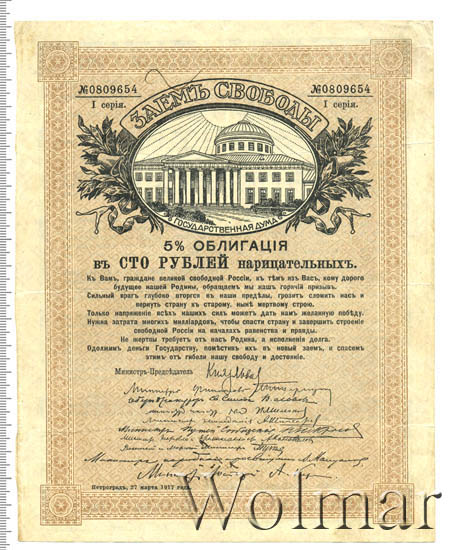 №0809654 №0809654
I серія. I серія.
ЗАЕМЪ СВОБОДЫ
ГОСУДАРСТВЕННАЯ ДУМА
5% ОБЛИГАЦІЯ
въ СТО РУБЛЕЙ нарицательныхъ.
Къ Вамъ, граждане великой свободной Россіи, къ тѣмъ изъ Васъ, кому дорого
будущее нашей Родины, обращаемъ мы нашъ горячій призывъ.
Сильный врагъ глубоко вторгся въ наши предѣлы, грозитъ сломить насъ и
вернуть страну къ старому, нынѣ мертвому строю.
Только напряженіе всѣхъ нашихъ силъ можетъ дать намъ желанную побѣду.
Нужна затрата многихъ милліардовъ, чтобы спасти страну и завершить строеніе
свободной Россіи на началахъ равенства и правды.
Не жертвы требуетъ отъ насъ Родина, а исполненія долга.
Одолжимъ деньги Государству, помѣстивъ ихъ въ новый заемъ, и спасемъ
этимъ отъ гибели нашу свободу и достояніе.
Министръ-Предсѣдатель Князь Львовъ
Петроградъ, 27 марта 1917 года.
Wolmar